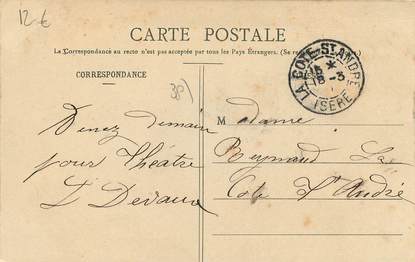 12 €
CARTE POSTALE
La Correspondance au recto n'est pas acceptée par tous les Pays Étrangers. (Se re
CORRESPONDANCE
38)
LA COTE-ST-ANDRÉ
* 8 -3
ISÈRE
Venez demain
pour Théâtre
L Devaux
Madame
Reynaud
Cote St André